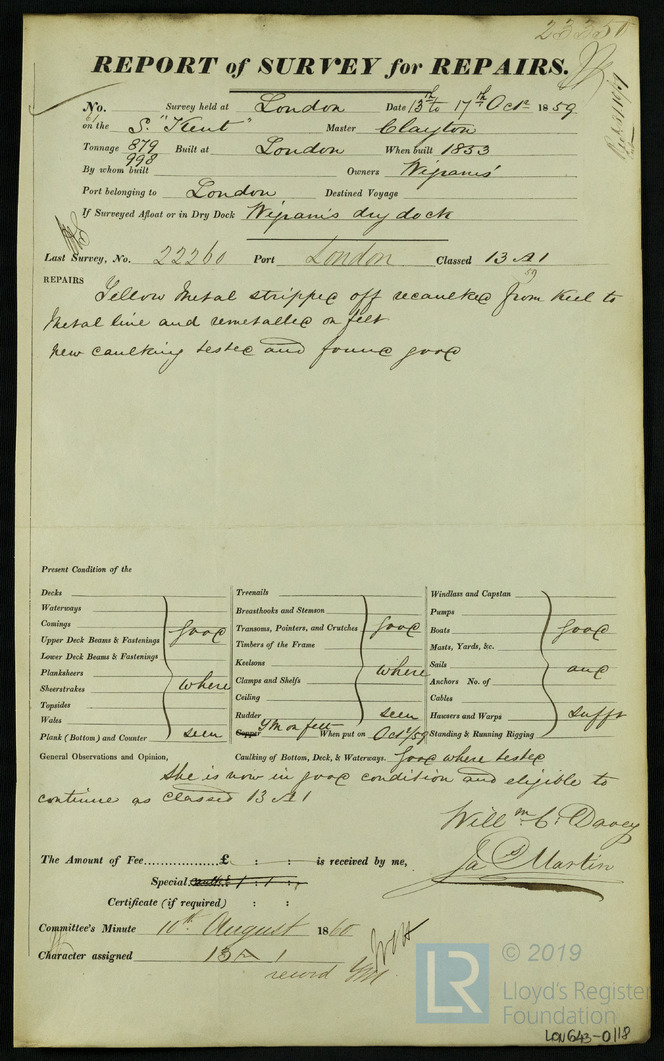 23350
REPORT of SURVEY for REPAIRS.
No. Survey held at London Date 13th to 17th Octr 1859
on the S. "Kent" Master Clayton
Tonnage 879 998 Built at London When built 1853
By whom built Owners Wigrams'
Port belonging to London Destined Voyage
If Surveyed Afloat or in Dry Dock Wigram's dry dock
Last Survey, No. 22260 Port London Classed 13 A1
59
REPAIRS Yellow Metal stripped off recaulked from Keel to
Metal line and remetalled on felt
New caulking tested and found good
Present Condition of the
Decks
Waterways
Comings
Upper Deck Beams & Fastenings
Lower Deck Beams & Fastenings
Planksheers
Sheerstrakes
Topsides
Wales
Plank (Bottom) and Counter
good
where
seen
Treenails
Breasthooks and Stemson
Transoms, Pointers, and Crutches
Timbers of the Frame
Keelsons
Clamps and Shelfs
Ceiling
Rudder
good
where
seen
Copper YM on felt When put on Octr/59
Windlass and Capstan
Pumps
Boats
Masts, Yards, &c.
Sails
Anchors No. of
Cables
Hawsers and Warps
Standing & Running Rigging
good
and
sufft
General Observations and Opinion, Caulking of Bottom, Deck, & Waterways. Good where tested
She is now in good condition and eligible to
continue as classed 13 A1
Willm C. Davey
Jas Martin
The Amount of Fee................£ : : is received by me,
Special
Certificate (if required) : :
Committee's Minute 10th August 1860
Character assigned 13 A 1
record YM.
© 2019
LR
Lloyd's Register
Foundation
LON643-0118